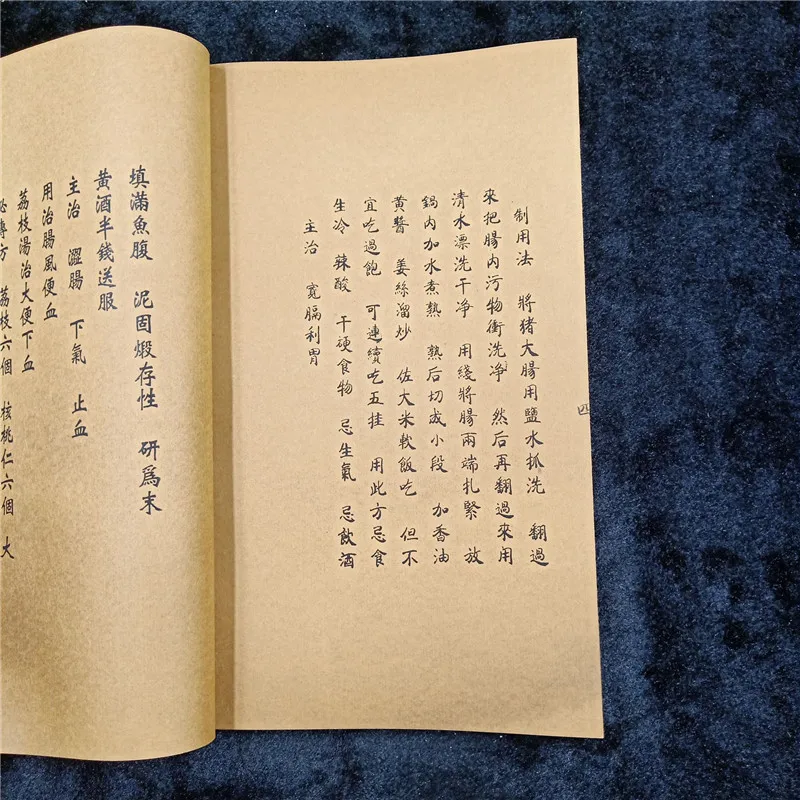 制用法 將猪大腸用鹽水抓洗 翻過
來把腸內污物衝洗净 然后再翻過來用
清水漂洗干净 用綫將腸兩端扎緊 放
鍋內加水煮熟 熟后切成小段 加香油
黄醬 姜絲溜炒 佐大米軟飯吃 但不
宜吃過飽 可連續吃五挂 用此方忌食
生冷 辣酸 干硬食物 忌生氣 忌飲酒
主治 寬膈利胃
四
填滿魚腹 泥固煅存性 研爲末
黄酒半錢送服
主治 澀腸 下氣 止血
用治腸風便血
荔枝湯治大便下血
荔枝六個 核桃仁六個 大